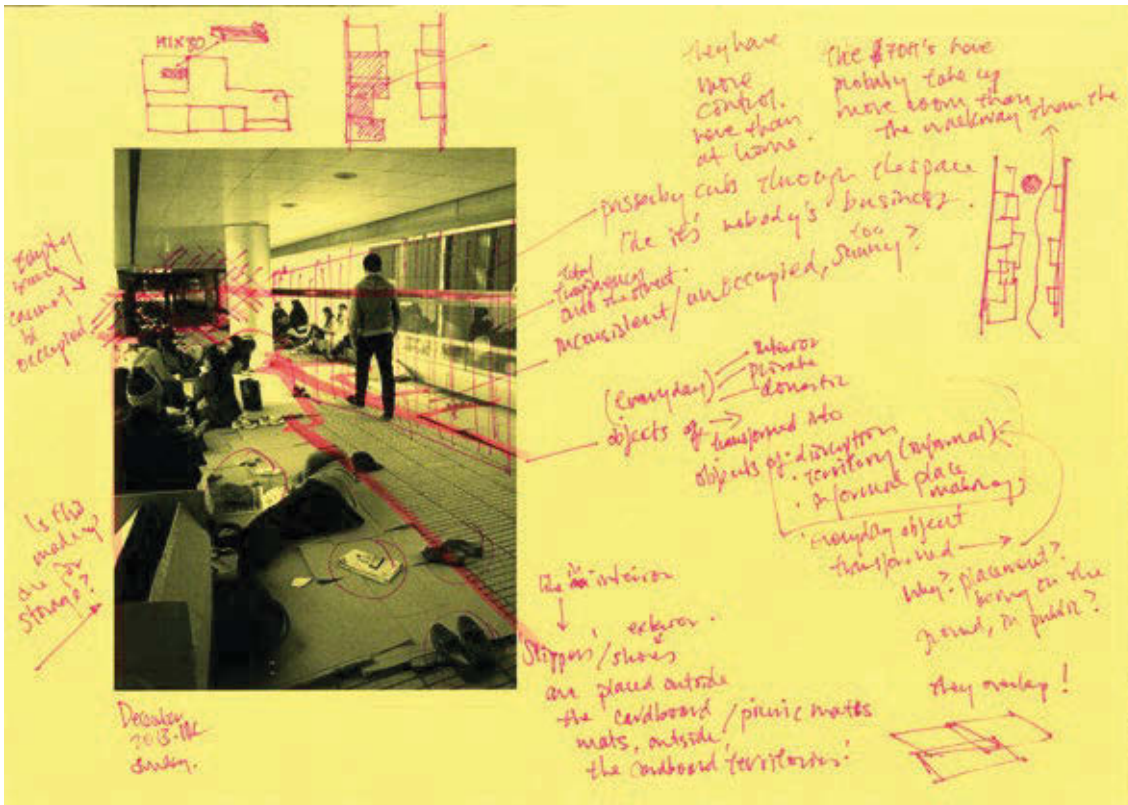 they have
more
control.
here than
at home.
The
have
probably take up
more room than
the walkway than the
passerby cuts through the space
like it's nobody's business.
too
Total
transparency
onto the street.
inconsistent/unoccupied, sunny?
empty
space
cannot
be
occupied
(everyday)
interior
private
domestic
objects of → transformed into
objects of disruption
• territory (informal)
• informal place
making
Everyday object
transformed →
why? placement?
being on the
ground, in public?
Is this
made
or
storage?
the interior
exterior.
'Slippers'/shoes
are placed outside
the cardboard
mats, outside/picnic mats
the cardboard 'territories'
they overlap!
December
2013.
Sunday.